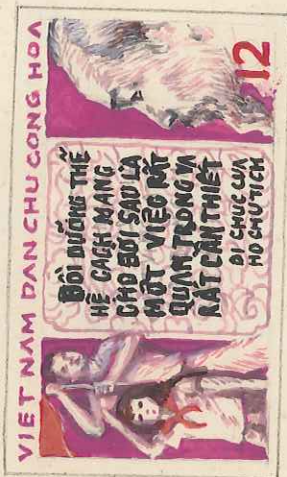 VIET NAM DAN CHU CONG HOA
BỒI DƯỠNG THẾ
HỆ CACH MANG
CHO ĐỜI SAU LÀ
MỘT VIỆC RẤT
QUAN TRONG VÀ
RẤT CẦN THIẾT
DI CHUC CUA
HO CHU TICH
12